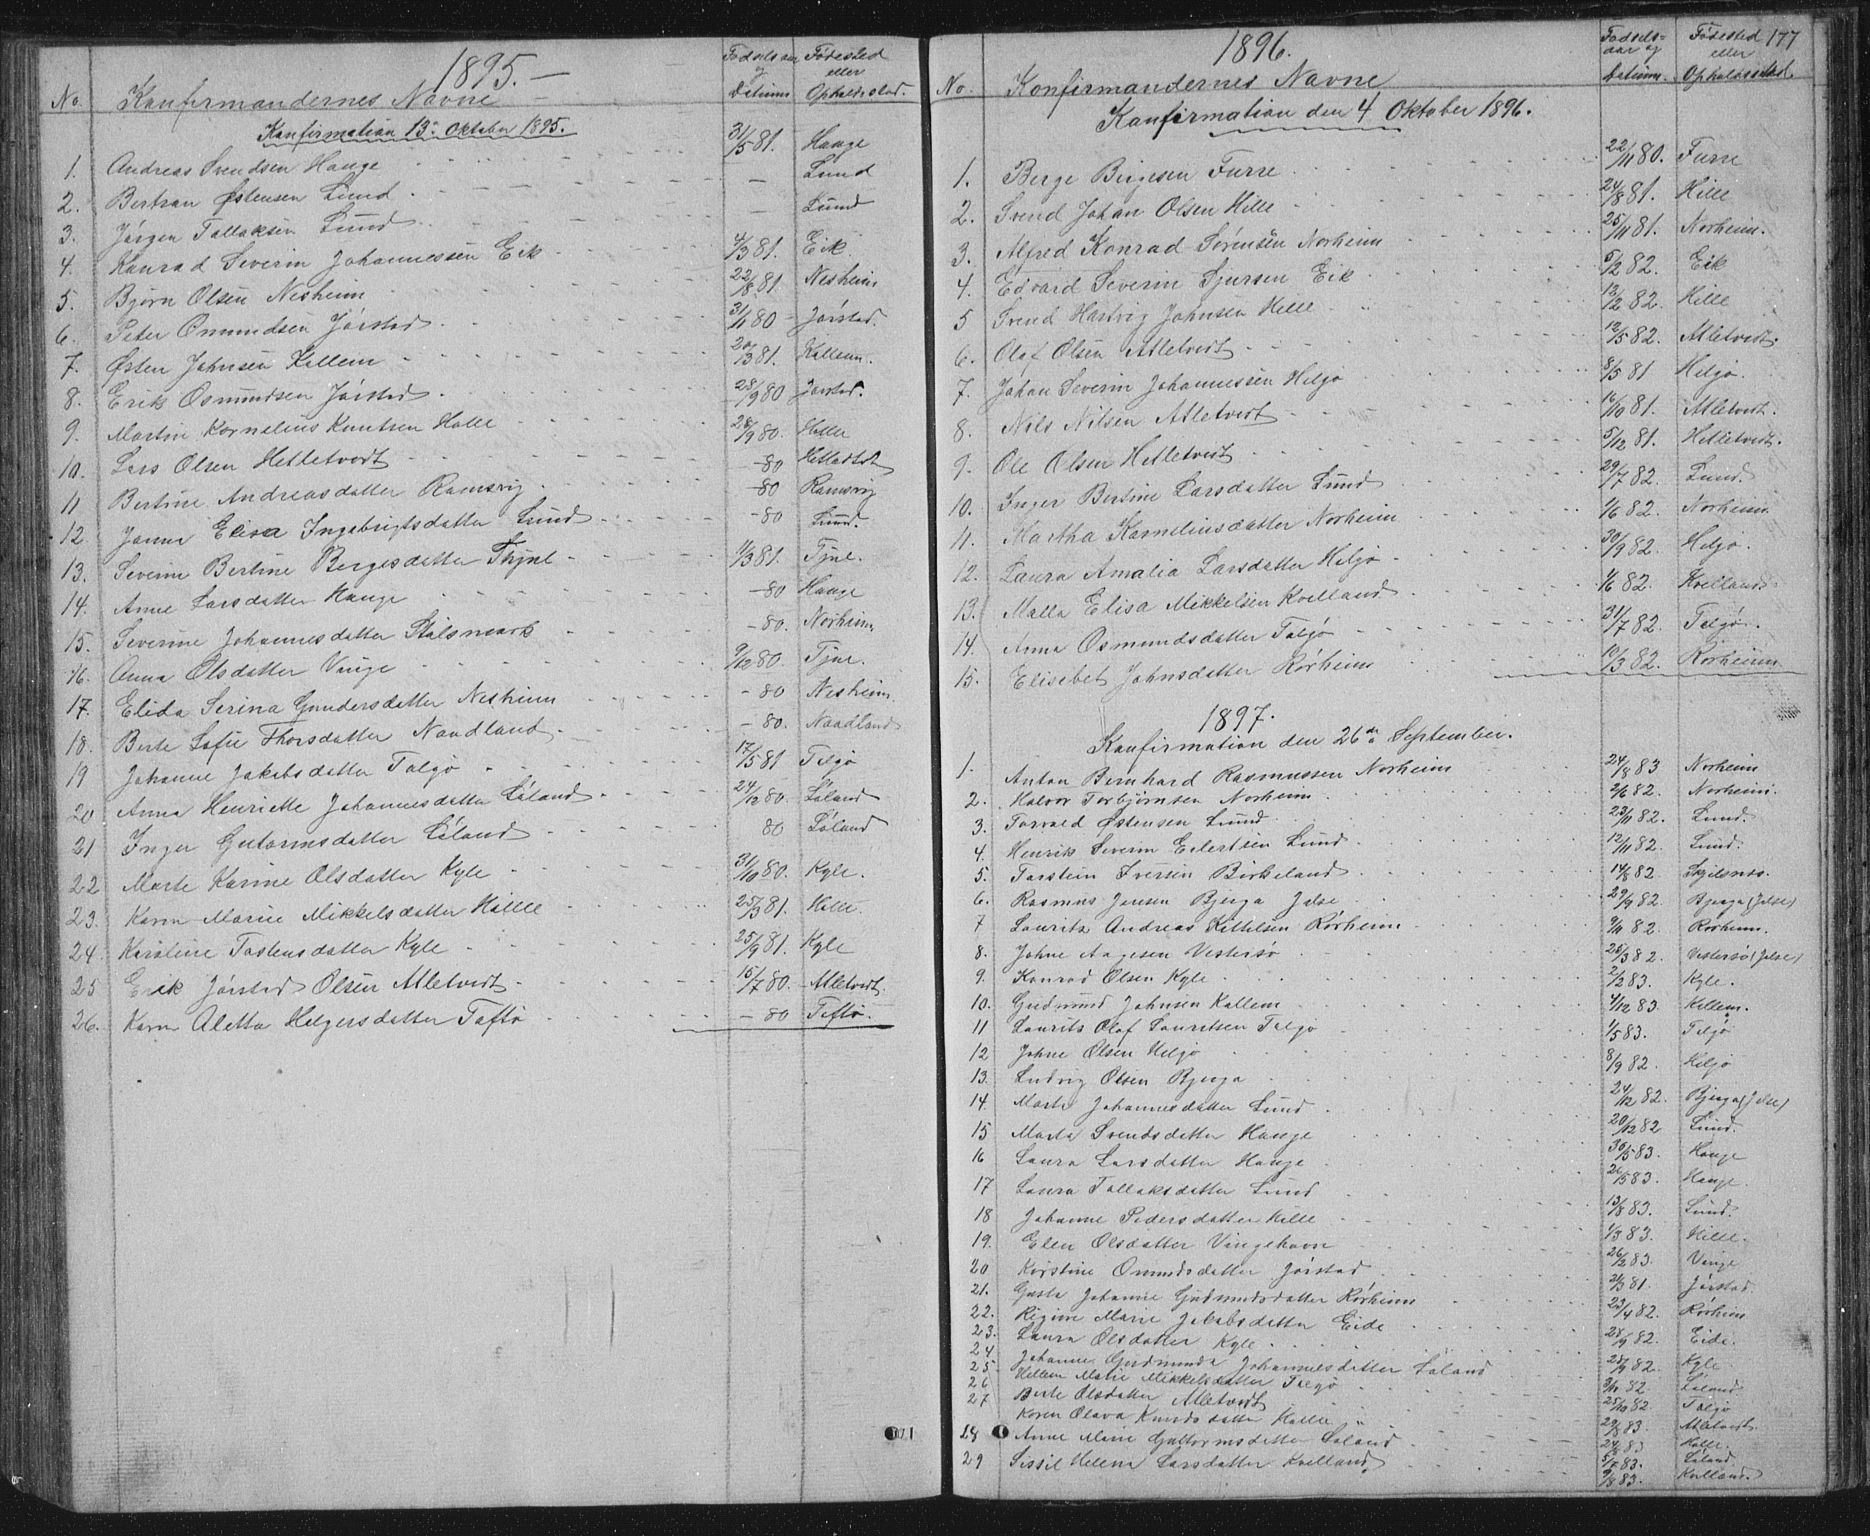 1895.—
No. Konfirmandernes Navne Fødselsaar og Datum Fødested eller Opholdssted.
Konfirmation 13de Oktober 1895.
1. Andreas Svendsen Hauge 31/5 81. Hauge
2. Bertran Østensen Lund — Lund
3. Jørgen Tallaksen Lund — Lund
4. Konrad Severin Johannessen Eik 4/3 81. Eik
5. Bjørn Olsen Nesheim 22/8 81. Nesheim
6. Peter Osmundsen Jørstad 80 Jørstad.
7. Østen Johnsen Kallem 20/3 81. Kallem.
8. Erik Osmundsen Jørstad 28/9 80 Jørstad.
9. Martin Kornelius Knutsen Halle 28/9 80. Halle
10. Lars Olsen Hetletvedt —80
11 Bertine Andreasdatter Ramsvig —80 Ramsvig
12. Elisa Ingebrigtsdatter Lund —80 Lund.
13. Severine Bertine Bergesdatter 81.
14. Anne Larsdatter Hauge —80 Hauge
15. Severine Johannesdatter Stålsmark —80. Norheim
16. Anna Olsdatter Vinge 9/12 80.
17. Elida Serina Gundersdatter Nesheim —80 Nesheim
18. Berte Sofie Thorsdatter Naadland —80. Naadland
19 Johanne Jakobsdatter Talgø 17/5 81 Talgø
20 Anna Henriette Johannesdatter Løland 24/12 80. Løland
21 Inger Gutormsdatter Løland 80 Løland
22 Marte Karine Olsdatter Kyle 31/10 80. Kyle.
23. Karen Marie Mikkelsdatter Halle 25/3 81. Halle
24. Karoline Tostensdatter Kyle 25/9 81. Kyle
25 Erik Jørstad Olsen Atletvedt 15/7 80. Atletvedt.
26. Karen Aletta Helgersdatter Toftø —80 Toftø.
1896.
177
No. Konfirmandernes Navne Fødsels-aar og Datum. Fødested eller Opholdssted.
Konfirmation den 4 Oktober 1896.
1. Berge Birgesen Furre 22/11 80. Furre
2. Svend Johan Olsen Hille 24/8 81. Hille
3. Alfred Konrad Sørensen Norheim 25/11 81. Norheim.
4. Edvard Severin Sjursen Eik 5/2 82. Eik
5 Svend Hartvig Johnsen Hille 13/2 82. Hille
6. Olaf Olsen Atletvedt 12/5 82. Atletvedt.
7. Johan Severin Johannessen Helgø 8/5 81 Helgø.
8. Nils Nilsen Atletvedt 16/10 81. Atletvedt.
9. Ole Olsen Hetletvedt 5/12 81. Hetletvedt.
10. Inger Bertine Larsdatter Lund 29/7 82. Lund.
11. Martha Korneliusdatter Norheim 1/6 82. Norheim
12. Laura Amalia Larsdatter Helgø 30/9 82. Helgø.
13. Malla Elisa Mikkelsen Kvelland 1/6 82. Kvelland
14. Anna Osmundsdatter Talgø 31/7 82. Talgø.
15. Elisabet Johnsdatter Rørheim 10/3 82. Rørheim
1897.
Konfirmation den 26de September.
1. Anton Bernhard Rasmussen Norheim 24/8 83 Norheim
2. Halvor Torbjørnsen Norheim 2/6 82. Norheim.
3. Torvald Østensen Lund 23/11 82. Lund.
4. Henrik Severin Eilertsen Lund 12/11 82. Lund.
5. Torstein Iversen Birkeland 14/8 82.
6. Rasmus Jensen Bjerga Jelse 29/9 82. Bjerga (Jelse)
7 Laurits Andreas Kittilsen Rørheim 9/11 82. Rørheim.
8. Johne Aagesen Vestersø 25/3 82. Vestersø (Jelse)
9. Konrad Olsen Kyle 2/2 83. Kyle.
10. Gudmund Johnsen Kallem 4/12 83. Kallem.
11 Laurits Olaf Lauritsen Talgø 1/5 83. Talgø
12 Johne Olsen Helgø 8/9 82. Helgø
13. Ludvig Olsen Bjerga 24/12 82. Bjerga (Jelse)
14. Marta Johannesdatter Lund 20/12 82 Lund.
15 Marta Svendsdatter Hauge 30/5 83. Hauge
16 Laura Larsdatter Hauge 83. Hauge.
17 Laura Tallaksdatter Lund 13/8 83. Lund.
18 Johanne Pedersdatter Hille 1/3 83. Hille.
19. Elen Olsdatter Vingehavn 26/2 83. Vinge
20 Kirstine Osmundsdatter Jørstad 81. Jørstad
21. Johanne Gudmundsdatter Rørheim 23/4 82. Rørheim
22. Regine Marie Jakobsdatter Eide 28/9 82. Eide.
23. Laura Olsdatter Kyle 82. Kyle
24 Johanne Gudmunda Johannesdatter Løland 82. Løland
25 Marie Mikkelsdatter Talgø 82. Talgø
26 Berte Olsdatter Atletvedt 83. Atletvedt
27 Karen Olava Knudsdatter Halle 83 Halle
28 Anne Marie Guttormsdatter Løland 83. Løland
29 Sissil Helene Larsdatter Kvelland 83. Kvelland.